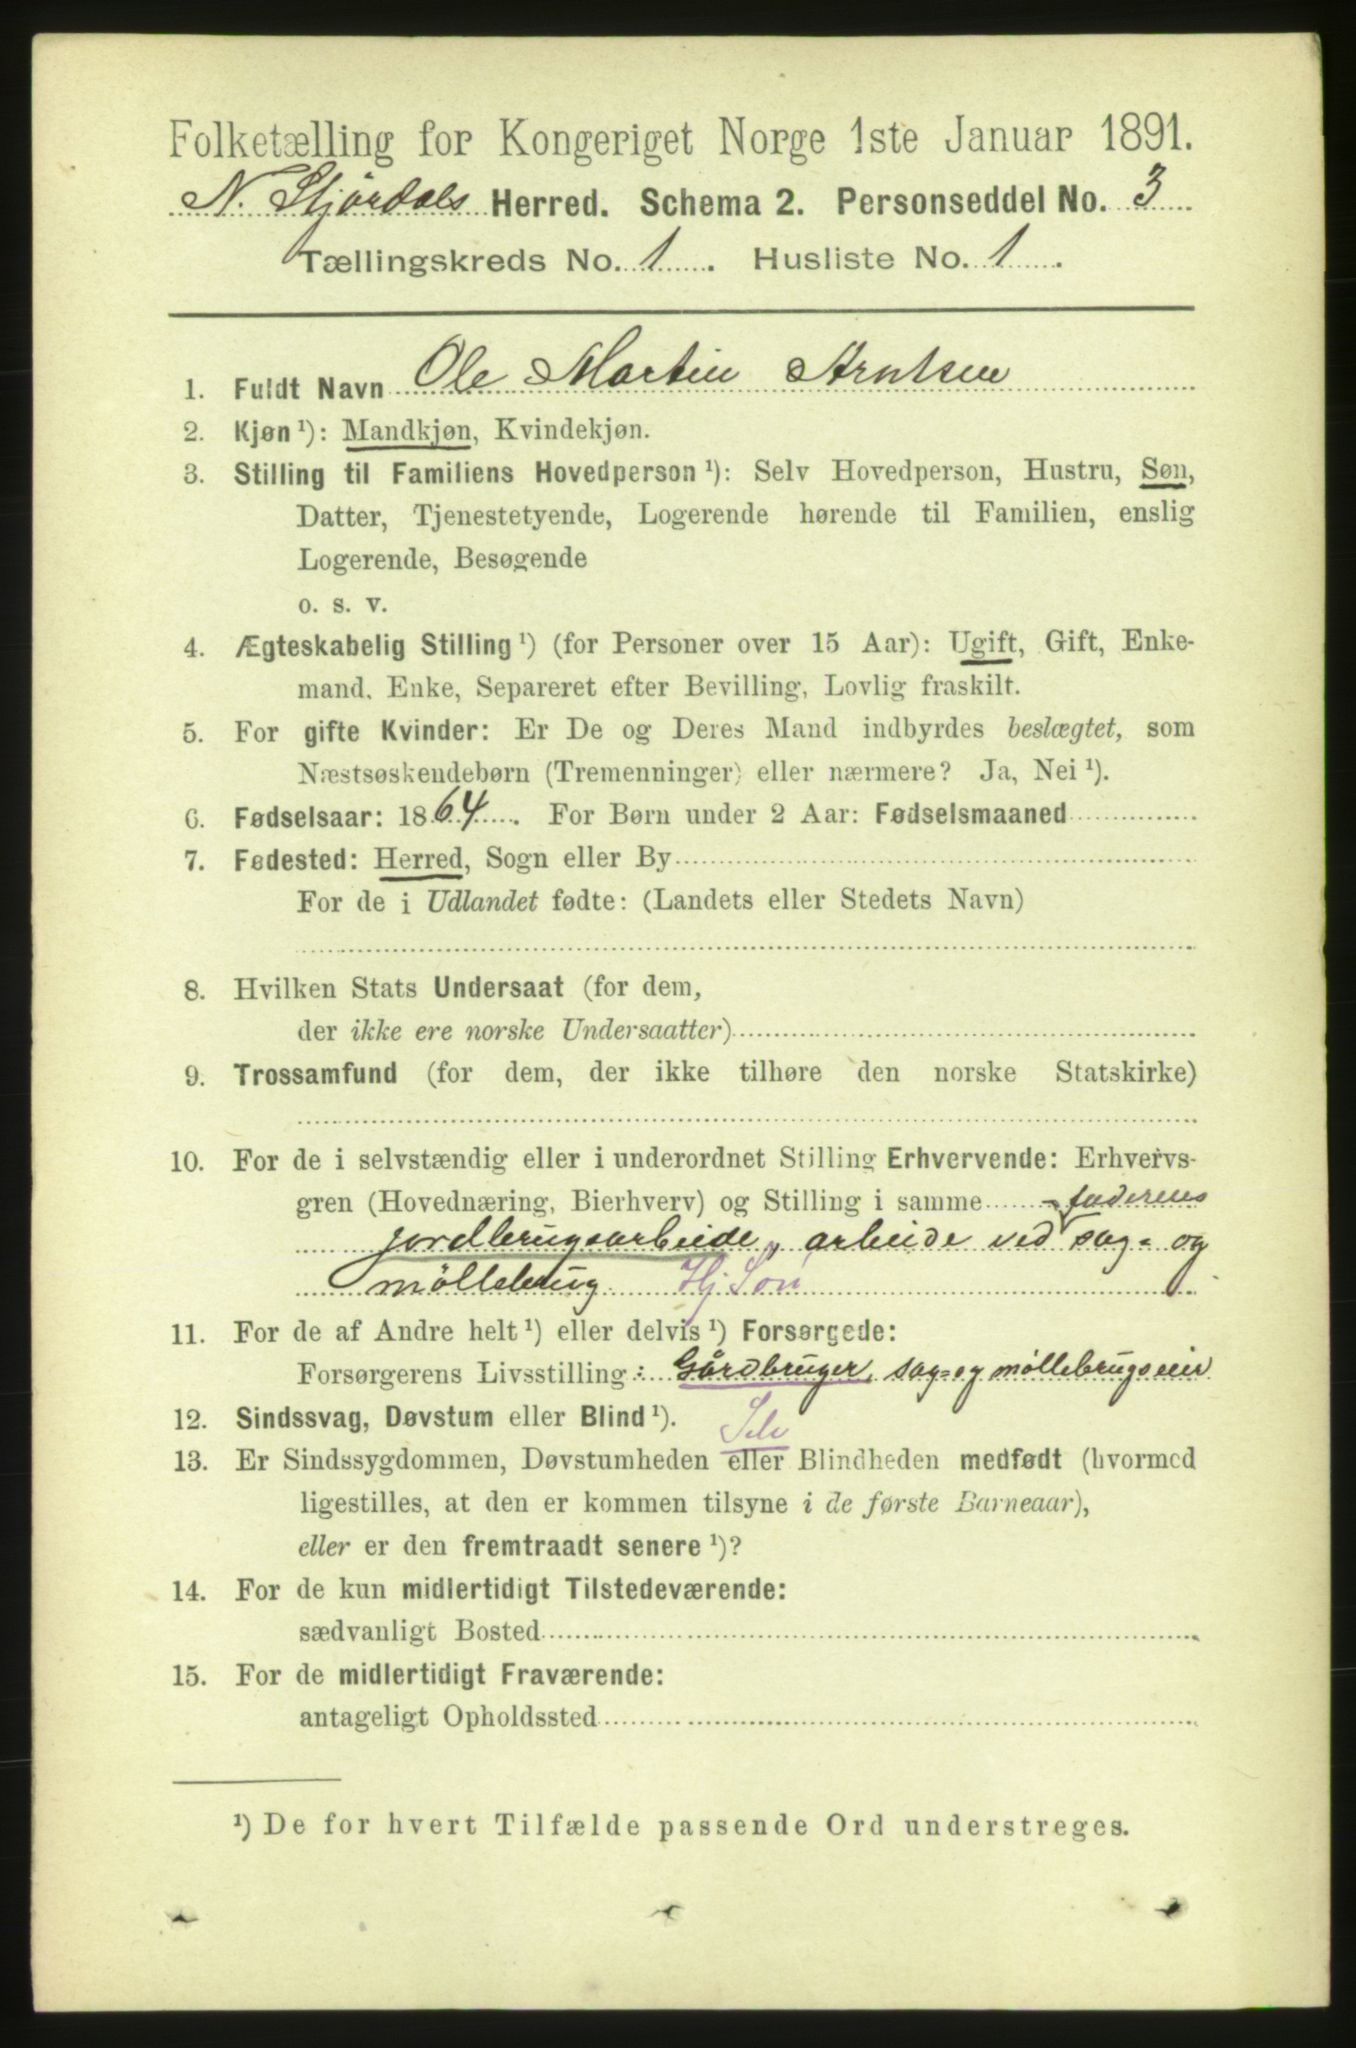 Folketælling for Kongeriget Norge 1ste Januar 1891.
N. Stjørdals Herred. Schema 2. Personseddel No. 3
Tællingskreds No. 1. Husliste No. 1.
1. Fuldt Navn Ole Martin Arntsen
2. Kjøn¹): Mandkjøn, Kvindekjøn.
3. Stilling til Familiens Hovedperson¹): Selv Hovedperson, Hustru, Søn,
Datter, Tjenestetyende, Logerende hørende til Familien, enslig
Logerende, Besøgende
o. s. v.
4. Ægteskabelig Stilling¹) (for Personer over 15 Aar): Ugift, Gift, Enke-
mand, Enke, Separeret efter Bevilling, Lovlig fraskilt.
5. For gifte Kvinder: Er De og Deres Mand indbyrdes beslægtet, som
Næstsøskendebørn (Tremenninger) eller nærmere? Ja, Nei¹).
6. Fødselsaar: 1864. For Børn under 2 Aar: Fødselsmaaned
7. Fødested: Herred, Sogn eller By
For de i Udlandet fødte: (Landets eller Stedets Navn)
8. Hvilken Stats Undersaat (for dem,
der ikke ere norske Undersaatter)
9. Trossamfund (for dem, der ikke tilhøre den norske Statskirke)
10. For de i selvstændig eller i underordnet Stilling Erhvervende: Erhvervs-
gren (Hovednæring, Bierhverv) og Stilling i samme faderens
jordbrugsarbeide, arbeide ved sag- og
møllebrug Hj. Søn
11. For de af Andre helt¹) eller delvis¹) Forsørgede:
Forsørgerens Livsstilling: Gårdbruger, sag- og møllebrugseier
12. Sindssvag, Døvstum eller Blind¹). Selv
13. Er Sindssygdommen, Døvstumheden eller Blindheden medfødt (hvormed
ligestilles, at den er kommen tilsyne i de første Barneaar),
eller er den fremtraadt senere¹)?
14. For de kun midlertidigt Tilstedeværende:
sædvanligt Bosted
15. For de midlertidigt Fraværende:
antageligt Opholdssted
¹) De for hvert Tilfælde passende Ord understreges.